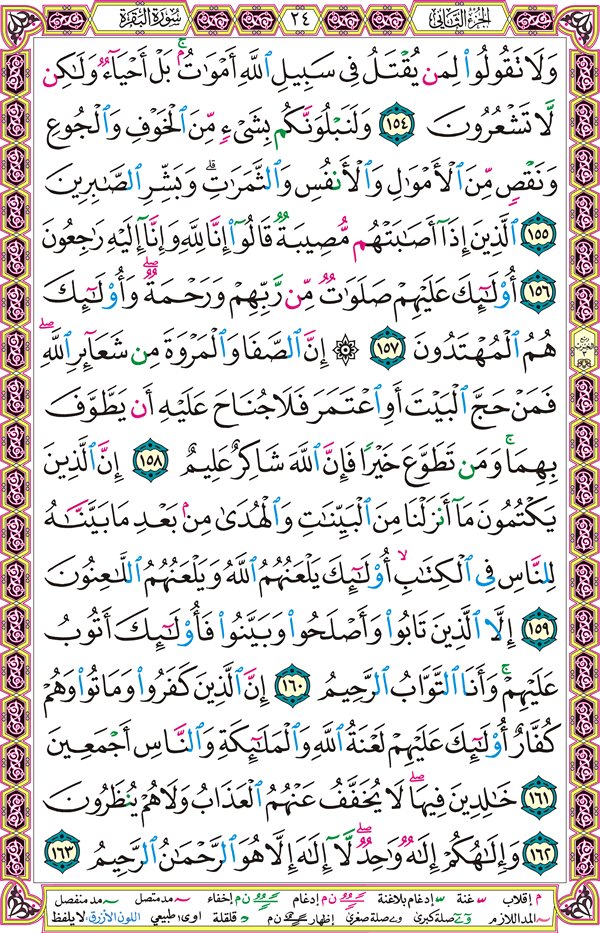 الجزء الثاني ٢٤ سورة البقرة
وَلَا تَقُولُوا۟ لِمَن يُقْتَلُ فِى سَبِيلِ ٱللَّهِ أَمْوَٰتٌۢ ۚ بَلْ أَحْيَآءٌ وَلَٰكِن
لَّا تَشْعُرُونَ ١٥٤ وَلَنَبْلُوَنَّكُم بِشَىْءٍ مِّنَ ٱلْخَوْفِ وَٱلْجُوعِ
وَنَقْصٍ مِّنَ ٱلْأَمْوَٰلِ وَٱلْأَنفُسِ وَٱلثَّمَرَٰتِ ۗ وَبَشِّرِ ٱلصَّٰبِرِينَ
١٥٥ ٱلَّذِينَ إِذَآ أَصَٰبَتْهُم مُّصِيبَةٌ قَالُوٓا۟ إِنَّا لِلَّهِ وَإِنَّآ إِلَيْهِ رَٰجِعُونَ
١٥٦ أُو۟لَٰٓئِكَ عَلَيْهِمْ صَلَوَٰتٌ مِّن رَّبِّهِمْ وَرَحْمَةٌ ۖ وَأُو۟لَٰٓئِكَ
هُمُ ٱلْمُهْتَدُونَ ١٥٧ ۞ إِنَّ ٱلصَّفَا وَٱلْمَرْوَةَ مِن شَعَآئِرِ ٱللَّهِ ۖ
فَمَنْ حَجَّ ٱلْبَيْتَ أَوِ ٱعْتَمَرَ فَلَا جُنَاحَ عَلَيْهِ أَن يَطَّوَّفَ
بِهِمَا ۚ وَمَن تَطَوَّعَ خَيْرًا فَإِنَّ ٱللَّهَ شَاكِرٌ عَلِيمٌ ١٥٨ إِنَّ ٱلَّذِينَ
يَكْتُمُونَ مَآ أَنزَلْنَا مِنَ ٱلْبَيِّنَٰتِ وَٱلْهُدَىٰ مِنۢ بَعْدِ مَا بَيَّنَّٰهُ
لِلنَّاسِ فِى ٱلْكِتَٰبِ ۙ أُو۟لَٰٓئِكَ يَلْعَنُهُمُ ٱللَّهُ وَيَلْعَنُهُمُ ٱللَّٰعِنُونَ
١٥٩ إِلَّا ٱلَّذِينَ تَابُوا۟ وَأَصْلَحُوا۟ وَبَيَّنُوا۟ فَأُو۟لَٰٓئِكَ أَتُوبُ
عَلَيْهِمْ ۚ وَأَنَا ٱلتَّوَّابُ ٱلرَّحِيمُ ١٦٠ إِنَّ ٱلَّذِينَ كَفَرُوا۟ وَمَاتُوا۟ وَهُمْ
كُفَّارٌ أُو۟لَٰٓئِكَ عَلَيْهِمْ لَعْنَةُ ٱللَّهِ وَٱلْمَلَٰٓئِكَةِ وَٱلنَّاسِ أَجْمَعِينَ
١٦١ خَٰلِدِينَ فِيهَا ۖ لَا يُخَفَّفُ عَنْهُمُ ٱلْعَذَابُ وَلَا هُمْ يُنظَرُونَ
١٦٢ وَإِلَٰهُكُمْ إِلَٰهٌ وَٰحِدٌ ۖ لَّآ إِلَٰهَ إِلَّا هُوَ ٱلرَّحْمَٰنُ ٱلرَّحِيمُ ١٦٣
م إقلاب غنة إدغام بلاغنة ن م إدغام ن م إخفاء مد متصل مد منفصل
المد اللازم صلة كبرى صلة صغرى إظهار ن م قلقلة اوى طبيعي اللون الأزرق: لا يلفظ